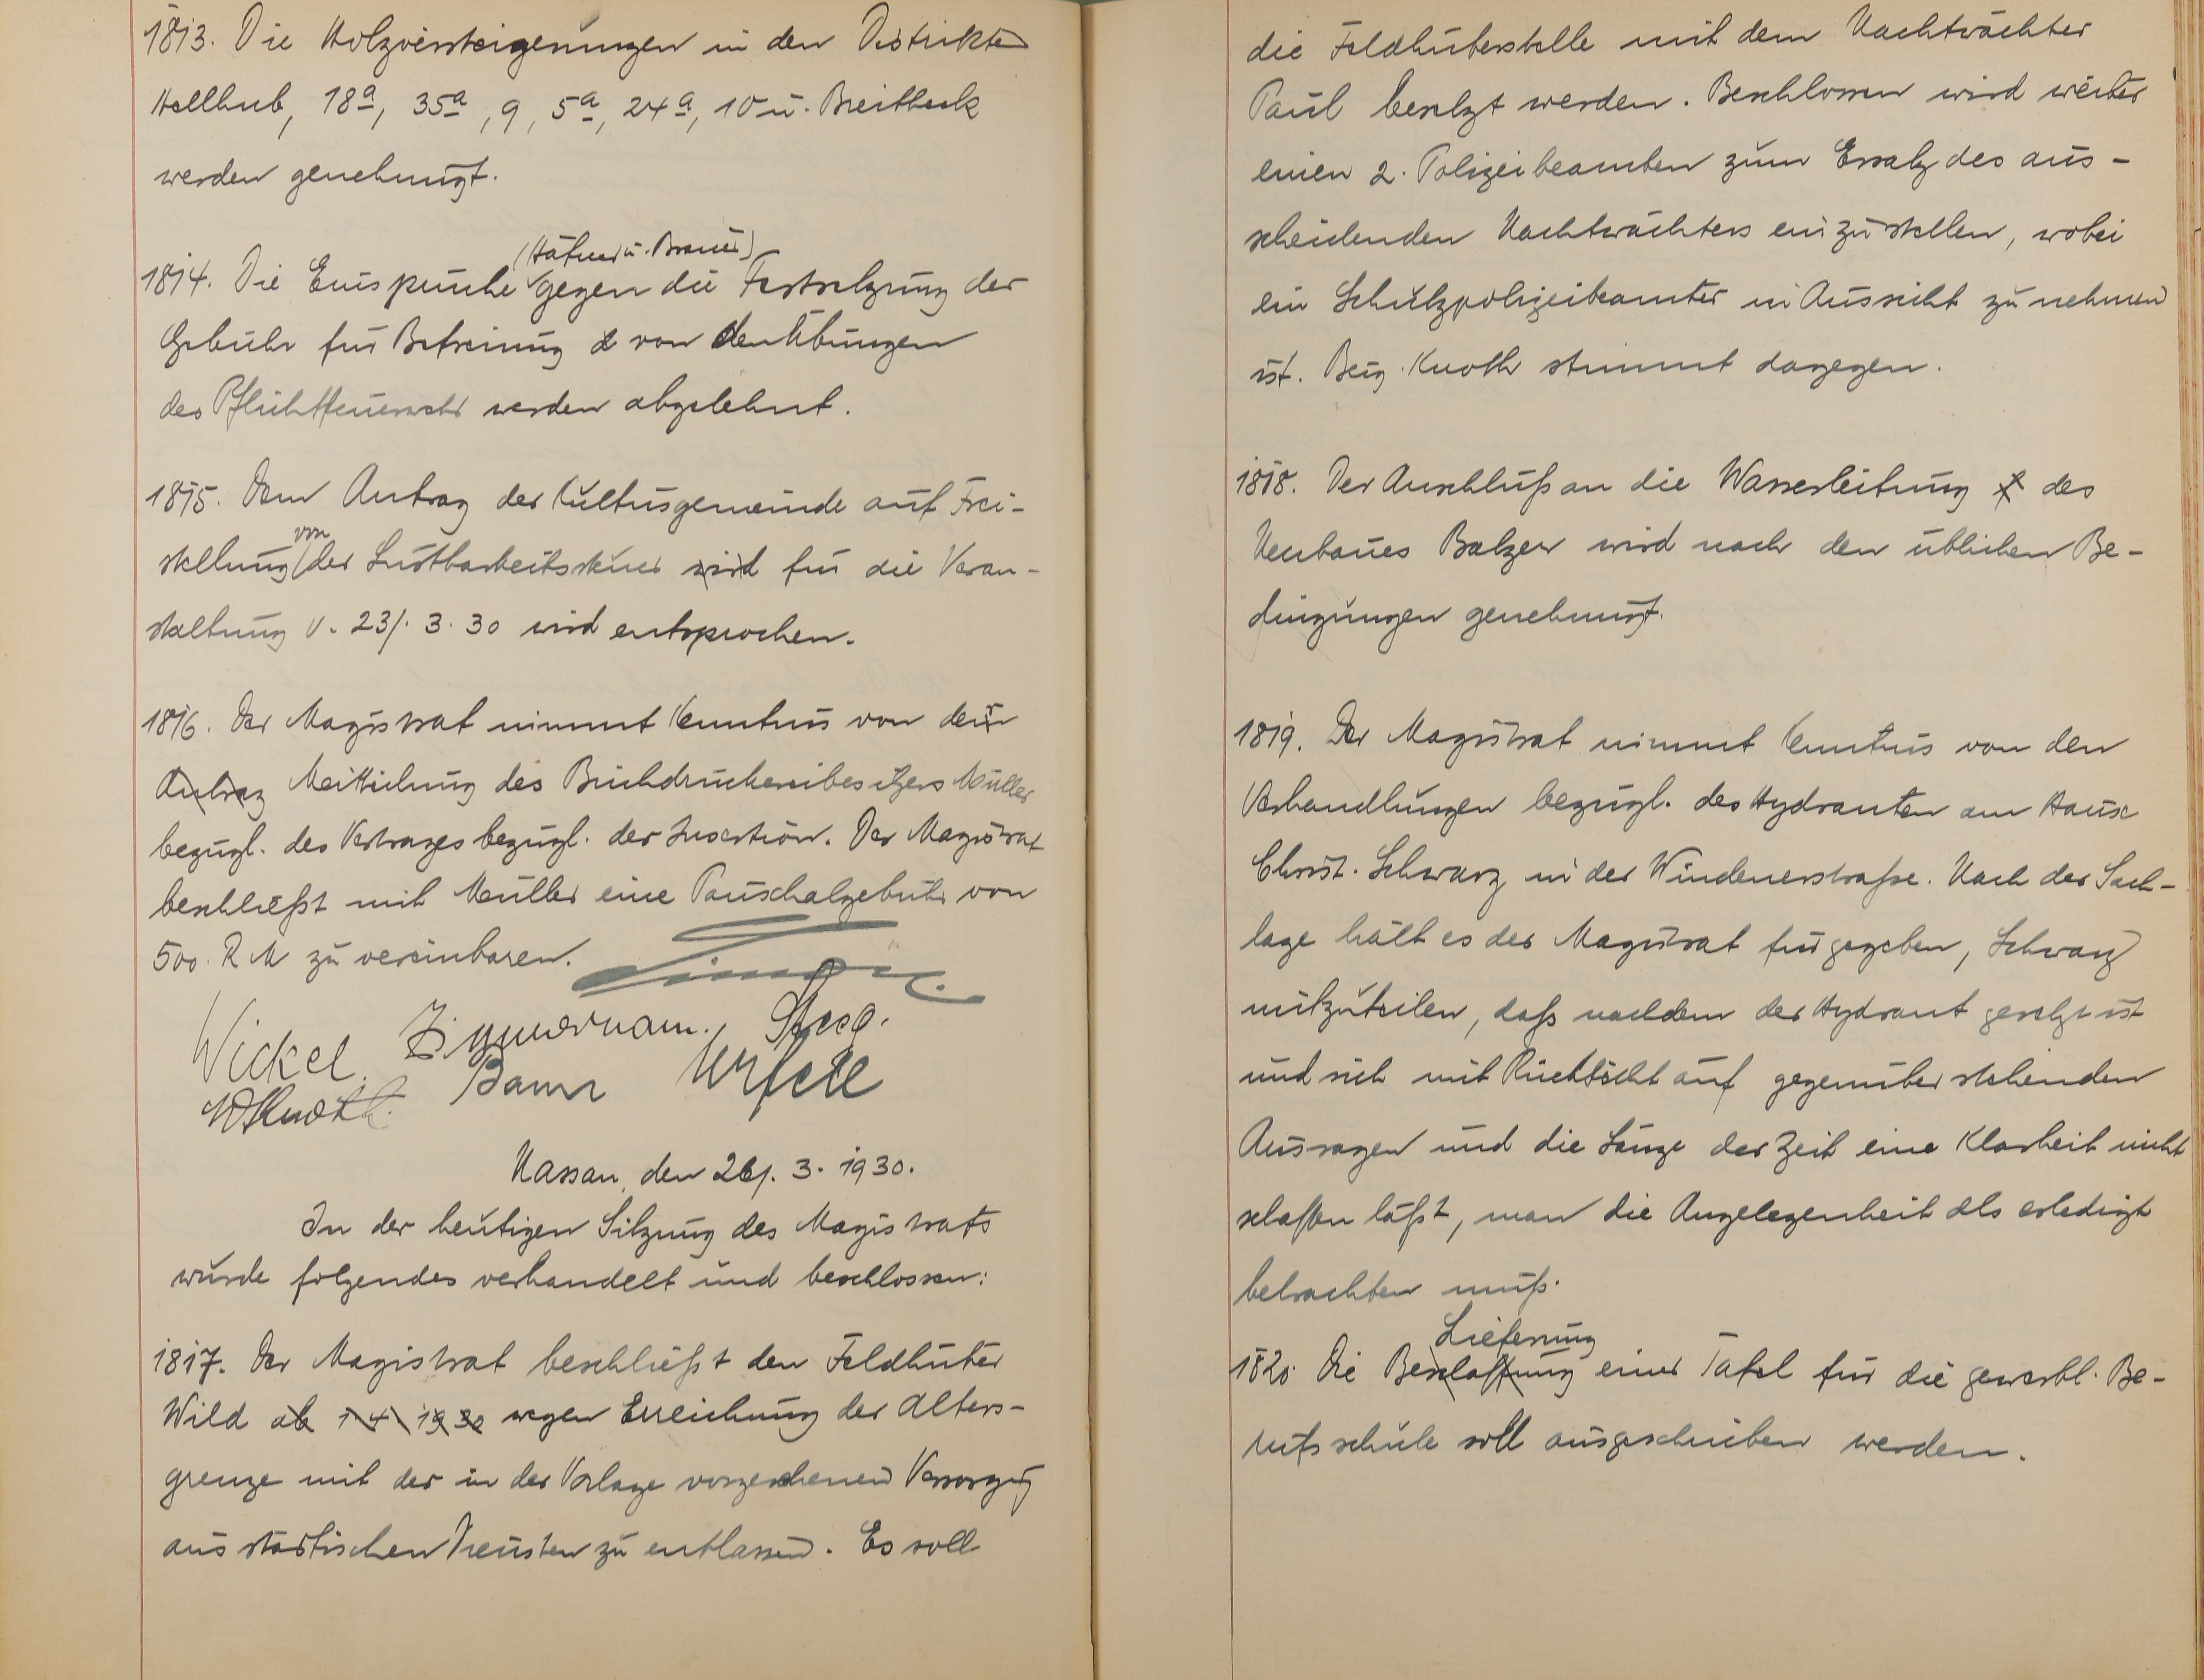 1813. Die Holzversteigerungen in den Distrikten
Hallhub, 18a, 35a, 9, 5a, 24a, 10 u. Breitheck
werden genehmigt.
(Häfner u. Brauer)
1814. Die Einsprüche gegen die Festsetzung der
Gebühr für Befreiung d von den Übungen
des Pflichtfeuerwehr werden abgelehnt.
1815. Dem Antrag der Kultusgemeinde auf Frei-
von
stellung der Lustbarkeitssteuer wird für die Veran-
staltung v. 23/. 3. 30 wird entsprochen.
1816. Der Magistrat nimmt Kenntnis von der
Antrag Mitteilung des Buchdruckereibesitzers Müller
bezügl. des Vertrages bezügl. der Insertion. Der Magistrat
beschließt mit Müller eine Pauschalgebühr von
500. R M zu vereinbaren.
Wickel. Zimmermann.
WKnoth. Baur
Nassau, den 26/. 3. 1930.
In der heutigen Sitzung des Magistrats
wurde folgendes verhandelt und beschlossen:
1817. Der Magistrat beschließt den Feldhüter
Wild ab 1 4 1930 wegen Erreichung der Alters-
grenze mit der in der Vorlage vorgesehenen Versorgung
aus städtischen Diensten zu entlassen. Es soll
die Feldhüterstelle mit dem Nachtwächter
Paul besetzt werden. Beschlossen wird weiter
einen 2. Polizeibeamten zum Ersatz des aus-
scheidenden Nachtwächters einzustellen, wobei
ein Schutzpolizeibeamter in Aussicht zu nehmen
ist. Beig. Knoth stimmt dagegen.
1818. Der Anschluß an die Wasserleitung des
Neubaues Balzer wird nach den üblichen Be-
dingungen genehmigt.
1819. Der Magistrat nimmt Kenntnis von den
Verhandlungen bezügl. des Hydranten am Hause
Christ. Schwarz in der Windenerstraße. Nach der Sach-
lage hält es der Magistrat für gegeben, Schwarz
mitzuteilen, daß nachdem der Hydrant gesetzt ist
und sich mit Rücksicht auf gegenüberstehenden
Aussagen und die Länge der Zeit eine Klarheit nicht
schaffen läßt, man die Angelegenheit als erledigt
betrachten muß.
Lieferung
1820. Die Beschaffung einer Tafel für die gewerbl. Be-
rufsschule soll ausgeschrieben werden.